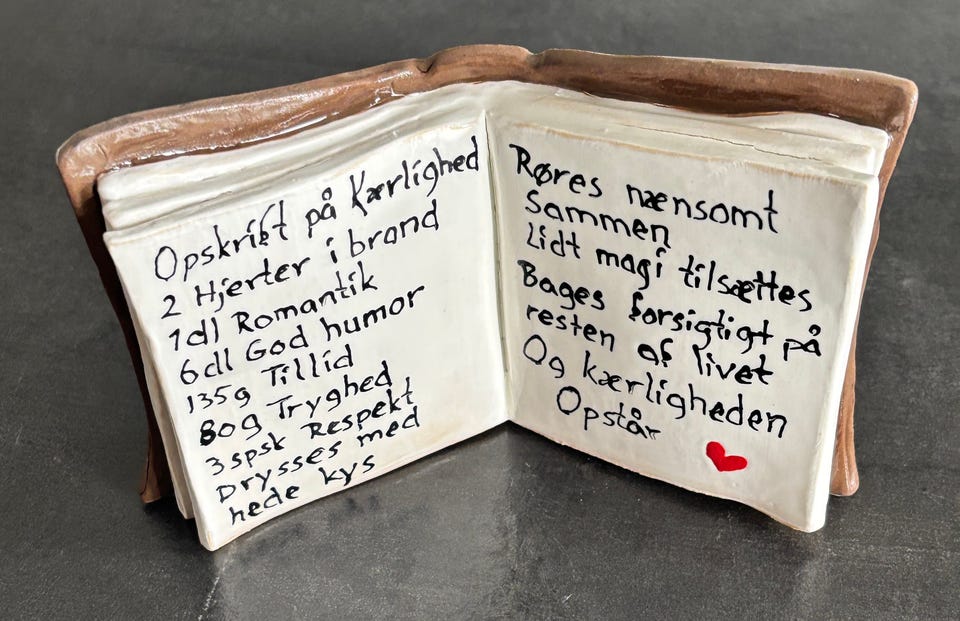 Opskrift på Kærlighed
2 Hjerter i brand
1dl Romantik
6dl God humor
135g Tillid
80g Tryghed
3spsk Respekt
Drysses med
hede kys
Røres nænsomt
Sammen
Lidt magi tilsættes
Bages forsigtigt på
resten af livet
Og kærligheden
Opstår